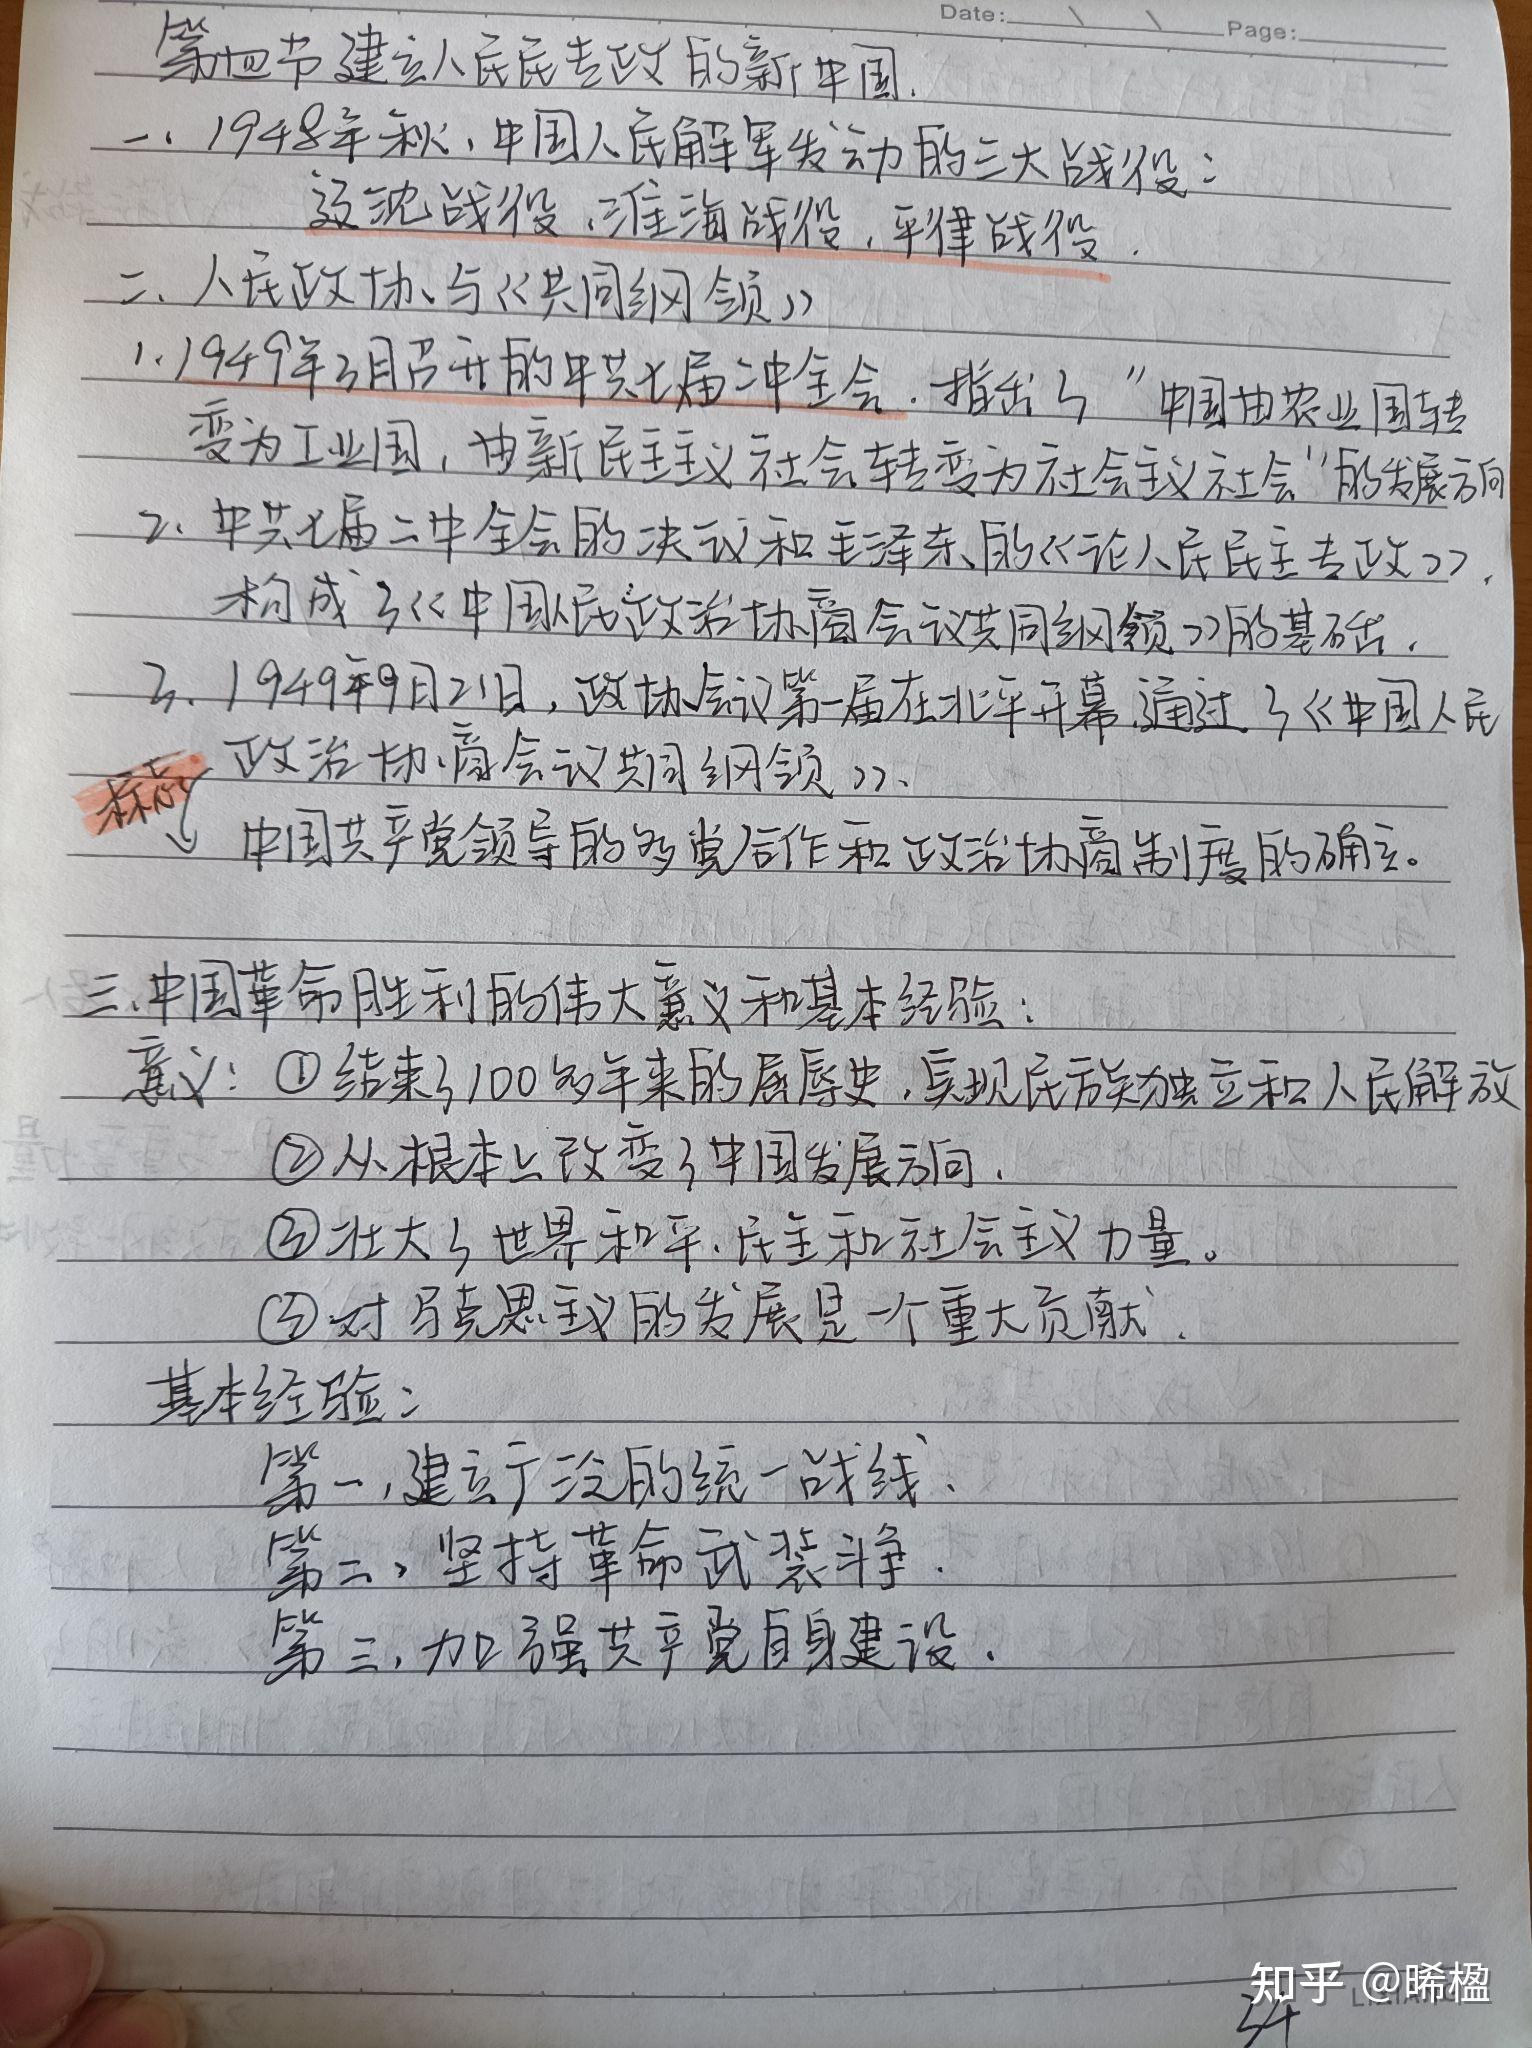 Date: \ \ Page:
第四节 建立人民民专政的新中国.
一、1948年秋、中国人民解军发动的三大战役:
辽沈战役、淮海战役、平律战役.
二、人民政协与《共同纲领》
1.1949年3月召开的中共七届二中全会.指出了"中国由农业国转
变为工业国,由新民主主义社会转变为社会主义社会"的发展方向
2.中共七届二中全会的决议和毛泽东的《论人民民主专政》,
构成了《中国人民政治协商会议共同纲领》的基础.
3.1949年9月21日,政协会议第一届在北平开幕,通过了《中国人民
政治协商会议共同纲领》、
标志
中国共产党领导的多党合作和政治协商制度的确立。
三、中国革命胜利的伟大意义和基本经验:
意义:①结束了100多年来的屈辱史,实现民族独立和人民解放
②从根本上改变了中国发展方向.
③壮大了世界和平、民主和社会主义力量。
③对马克思主义的发展是一个重大贡献.
基本经验:
第一,建立广泛的统一战线、
第二,坚持革命武装斗争.
第三,加强共产党自身建设.
知乎 @晞楹
34